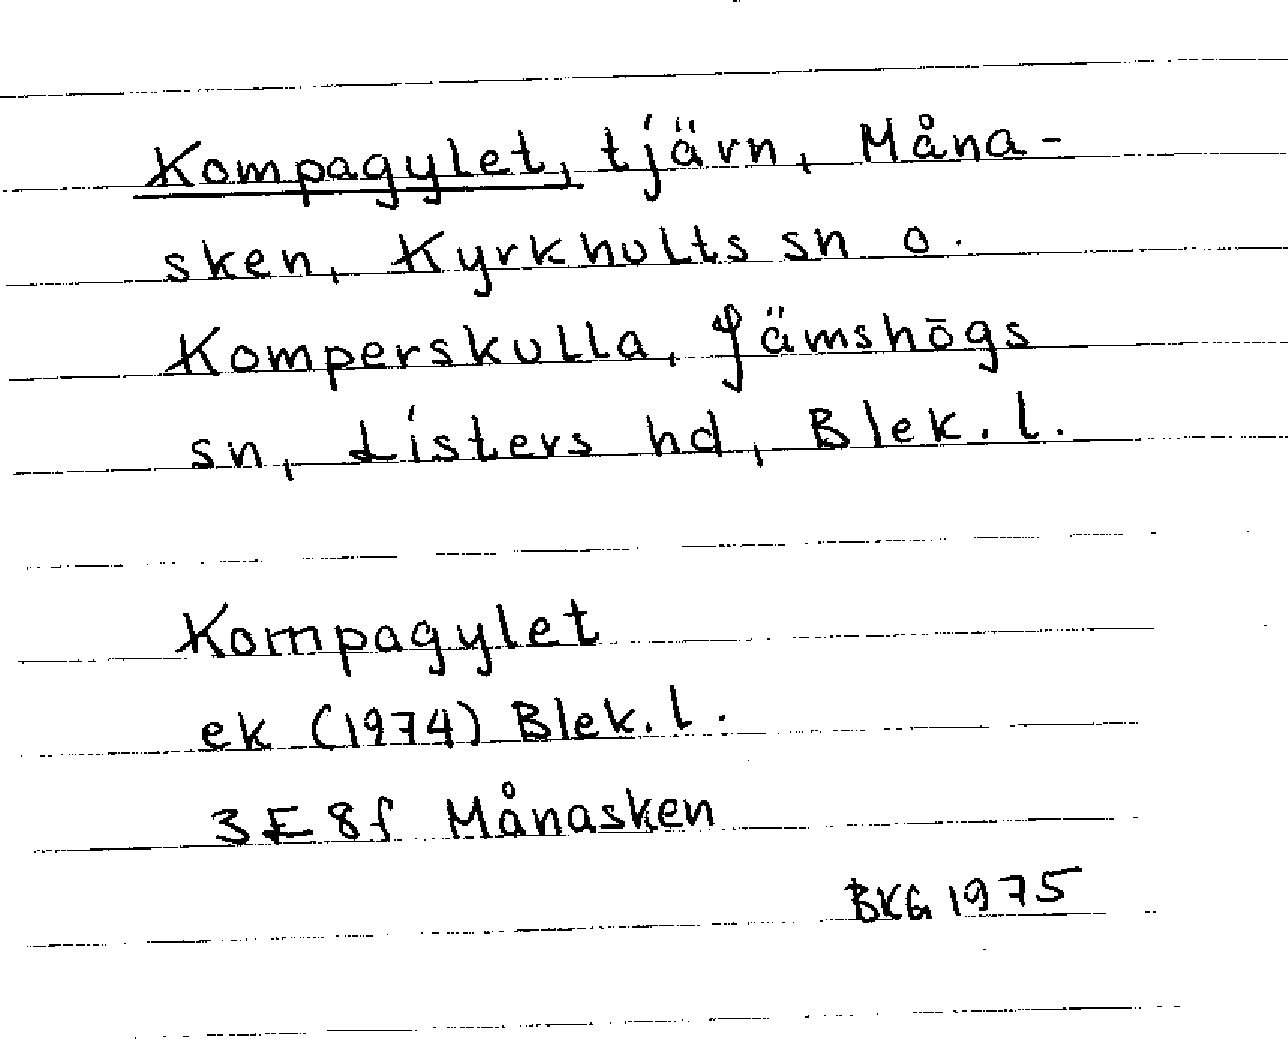 Kompagylet, tjärn, Måna-
sken, Kyrkhults sn o.
Komperskulla, Jämshögs
sn, Listers hd, Blek. l.
Kompagylet
ek (1974) Blek. l.
3E8f Månasken
BKG 1975